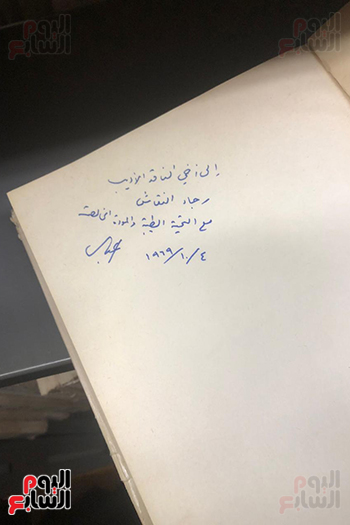 اليوم السابع
إلى أخي الناقد الأديب
رجاء النقاش
مع التحية الطيبة والمودة الخالصة
١٩٦٩/١٠/٤
اليوم السابع
اليوم السابع